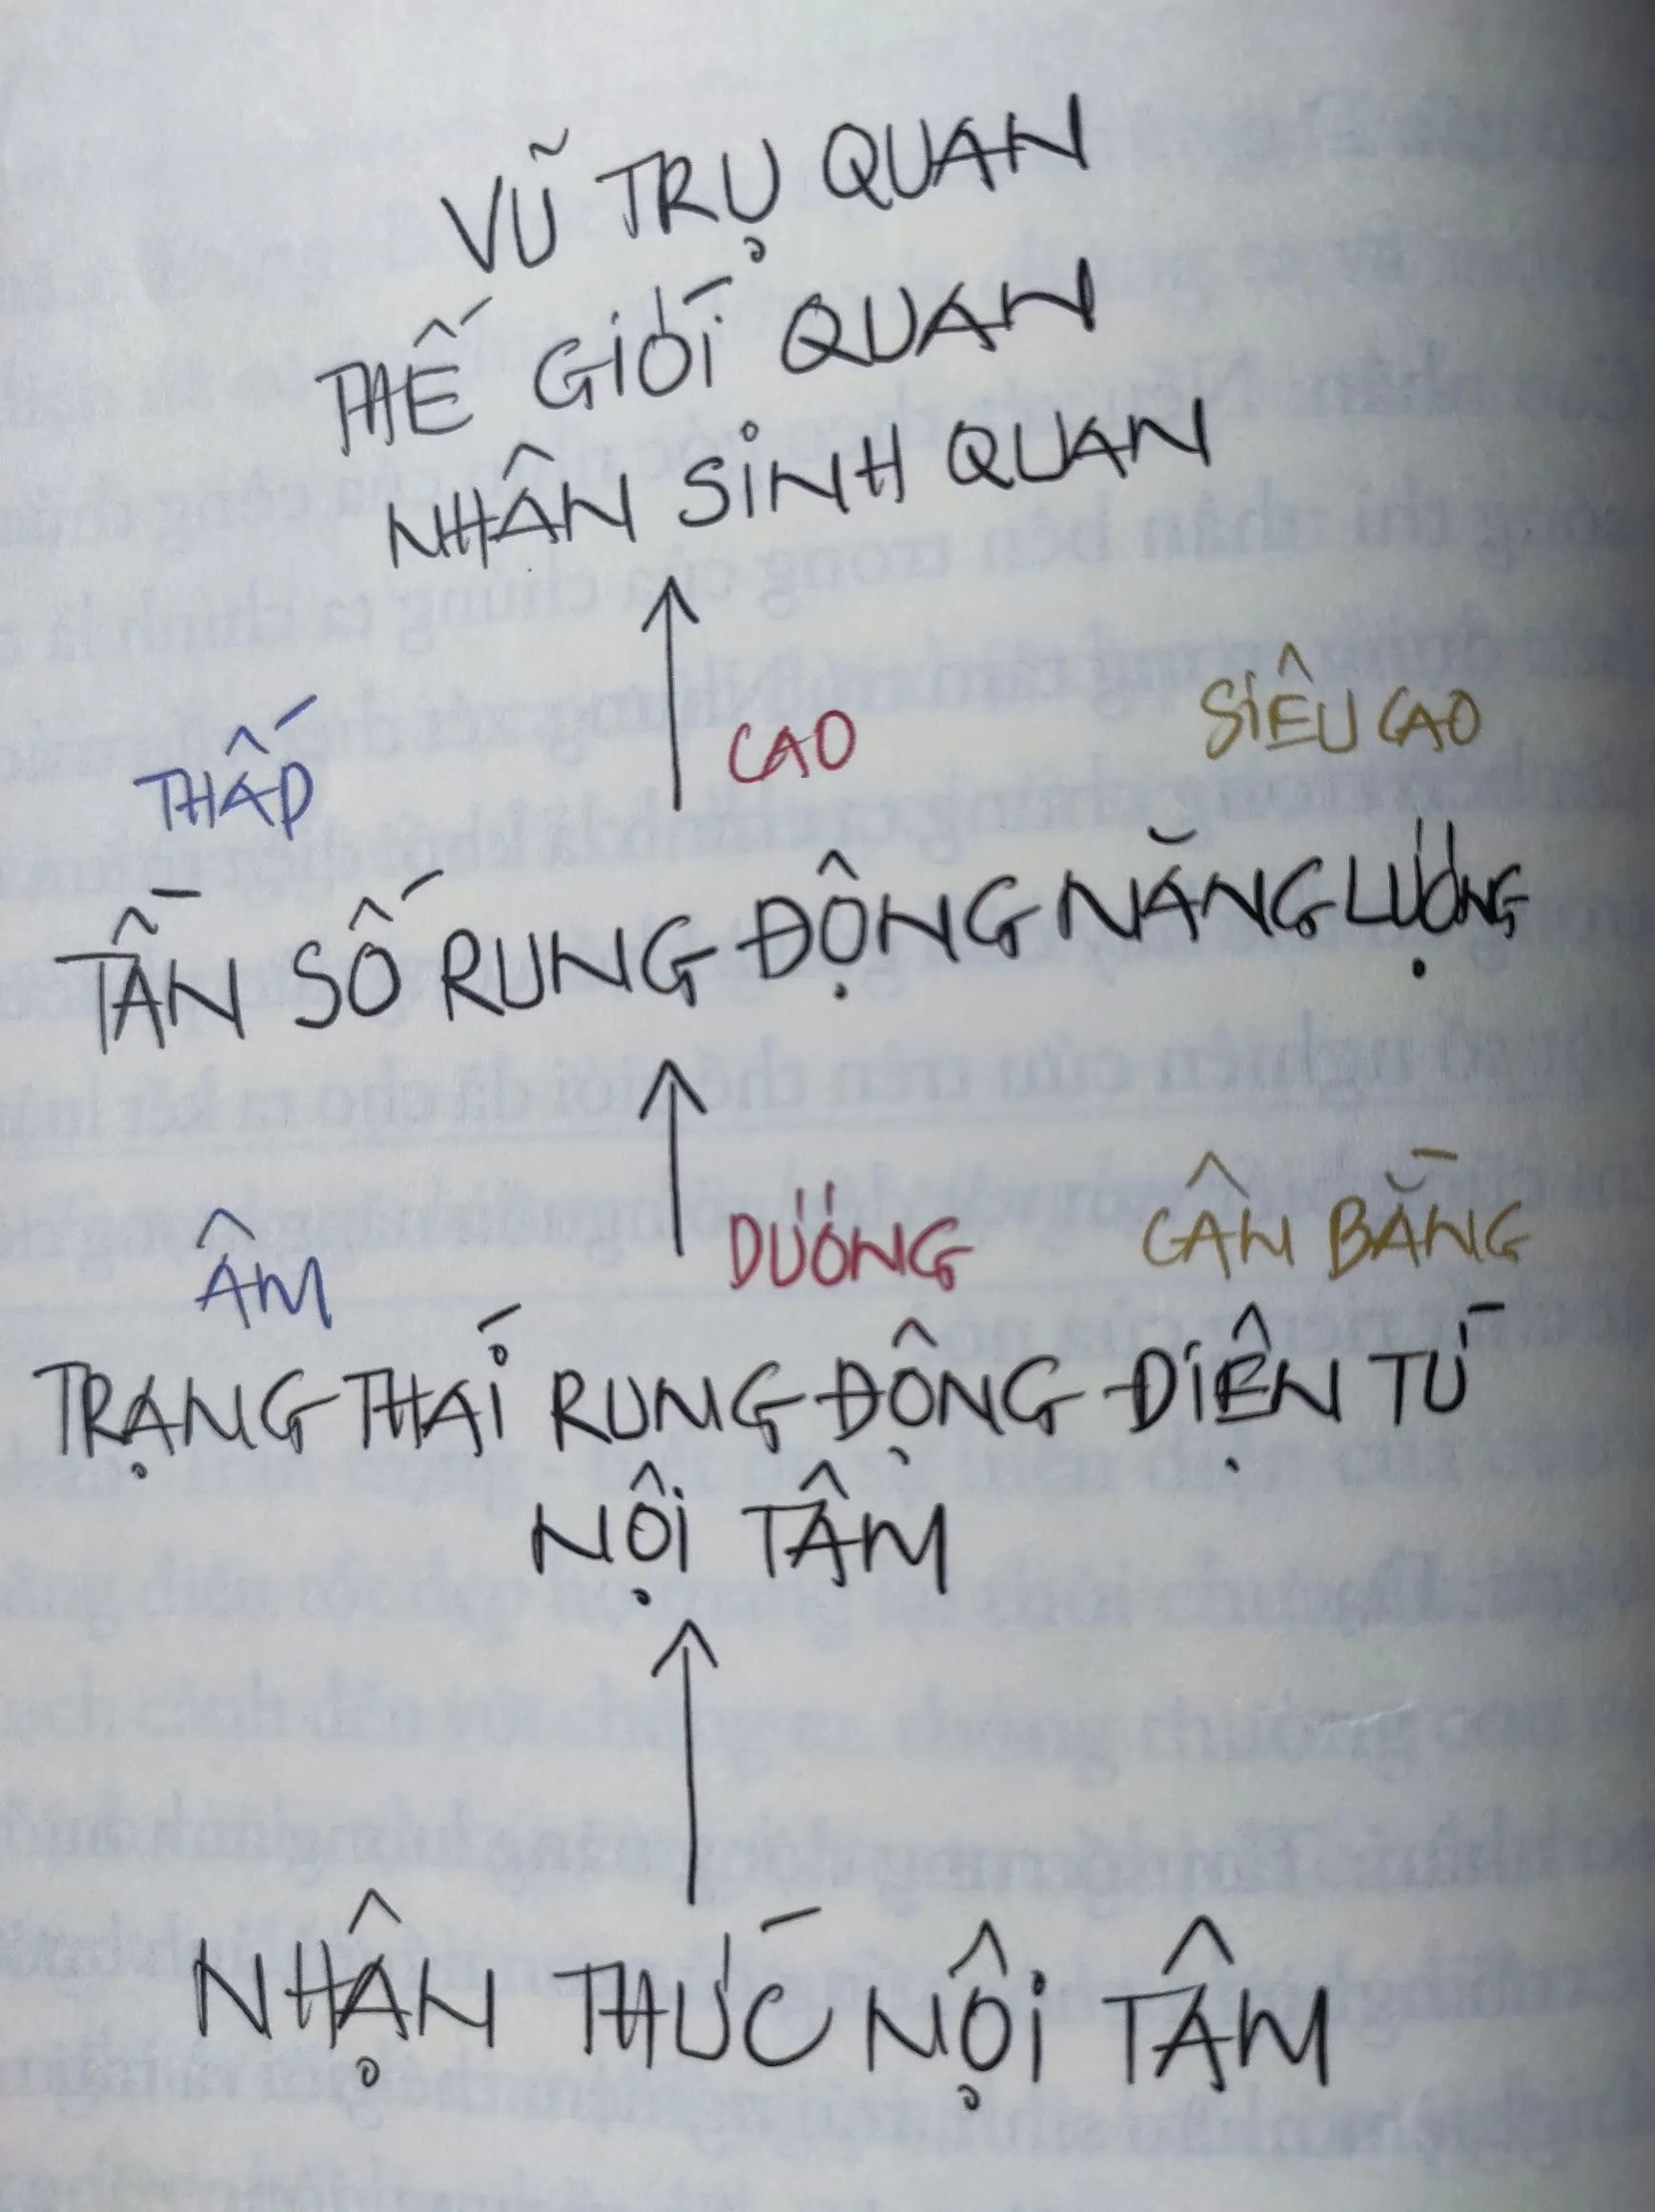 VŨ TRỤ QUAN
THẾ GIỚI QUAN
NHÂN SINH QUAN
THẤP CAO SIÊU CAO
TẦN SỐ RUNG ĐỘNG NĂNG LƯỢNG
ÂM DƯƠNG CÂN BẰNG
TRẠNG THÁI RUNG ĐỘNG ĐIỆN TỪ
NỘI TÂM
NHẬN THỨC NỘI TÂM